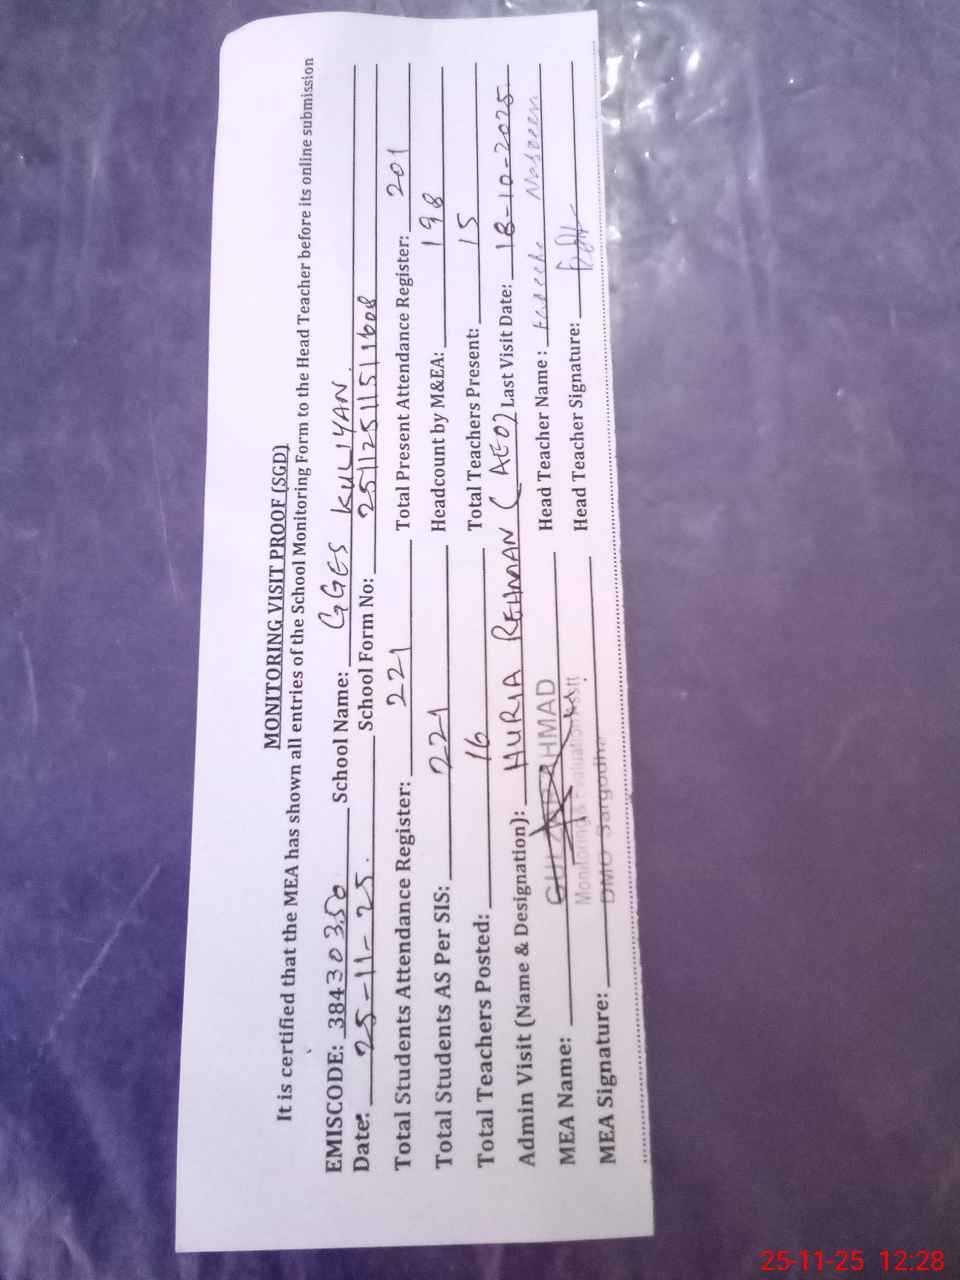 MONITORING VISIT PROOF (SGD)
It is certified that the MEA has shown all entries of the School Monitoring Form to the Head Teacher before its online submission
EMISCODE: 38430350 School Name: GGES KULIYAN.
Date: 25-11-25. School Form No:
Total Students Attendance Register: 221 Total Present Attendance Register: 201
Total Students AS Per SIS: 221 Headcount by M&EA: 198
Total Teachers Posted: 16 Total Teachers Present: 15
Admin Visit (Name & Designation): HURIA REHMAN (AEO) Last Visit Date: 18-10-2025
MEA Name: AHMAD Head Teacher Name: Naseem
Monitoring & Evaluation Asstt
MEA Signature: DMO Sargodha Head Teacher Signature:
25-11-25 12:28